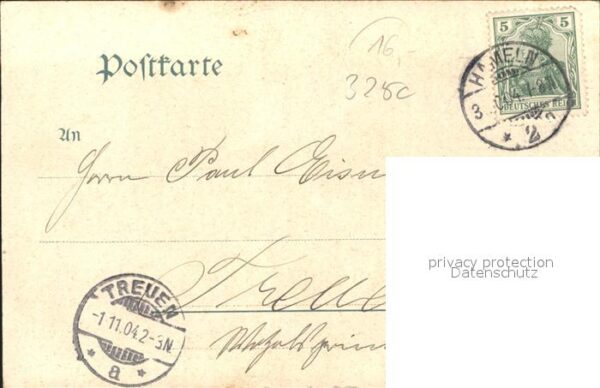 5 5
DEUTSCHES REICH
HAMELN
3
* 2
Postkarte
16,-
328c
An
Herrn Paul
privacy protection
Datenschutz
TREUEN
-1.11.04.2-3N.
* a *
Treue